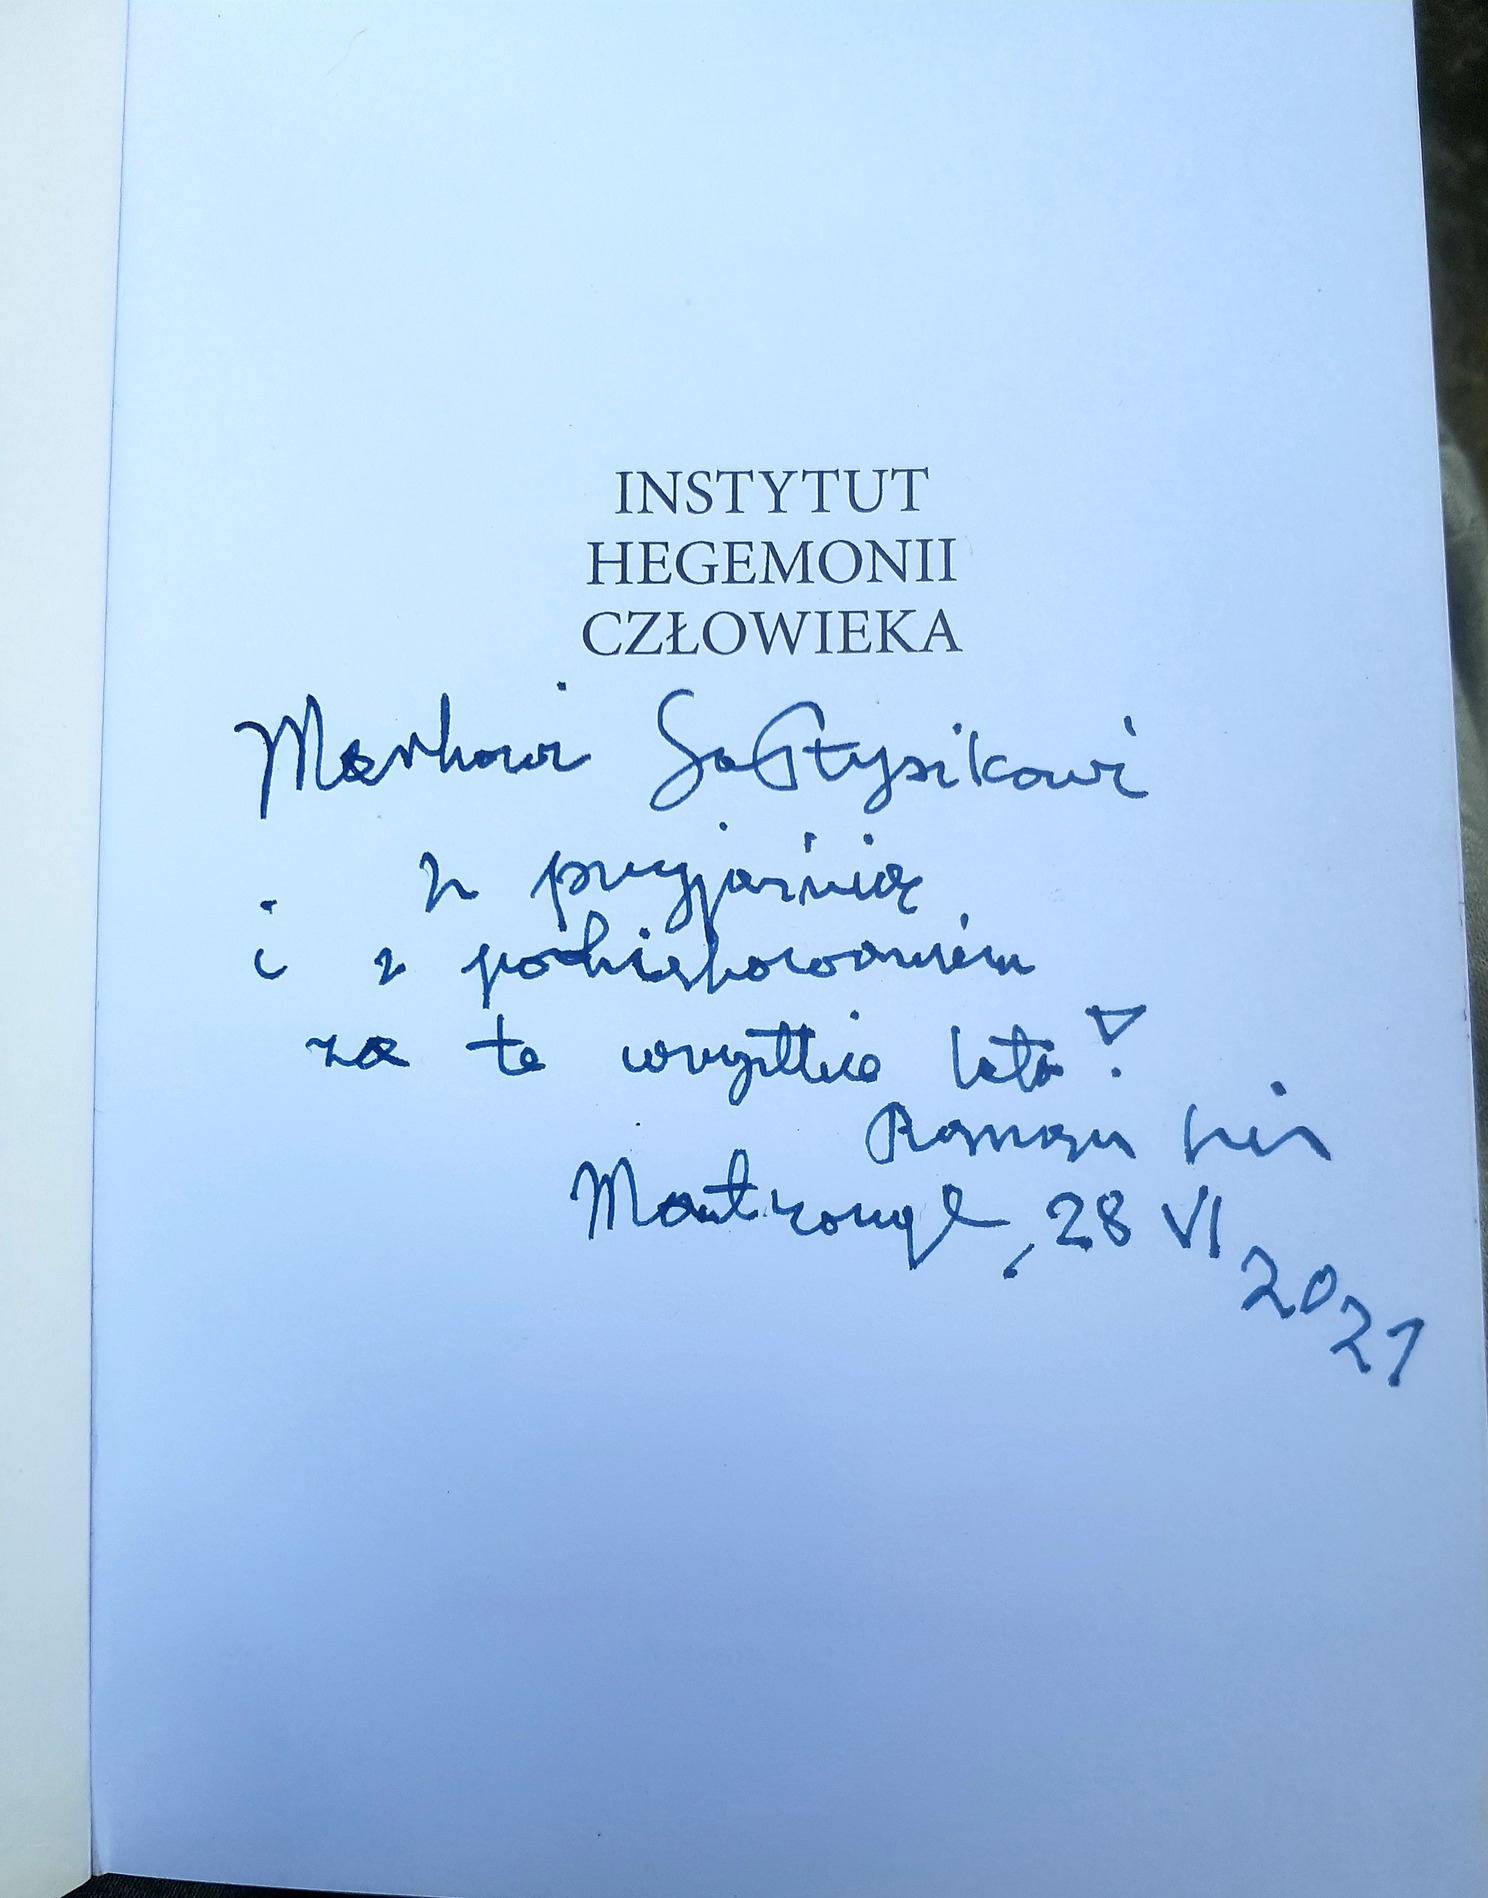 INSTYTUT
HEGEMONII
CZŁOWIEKA
Markowi Sołtysikowi
z przyjaźnią
i z podziękowaniem
za te wszystkie lata!
Roman
Montrouge, 28 VI
2021